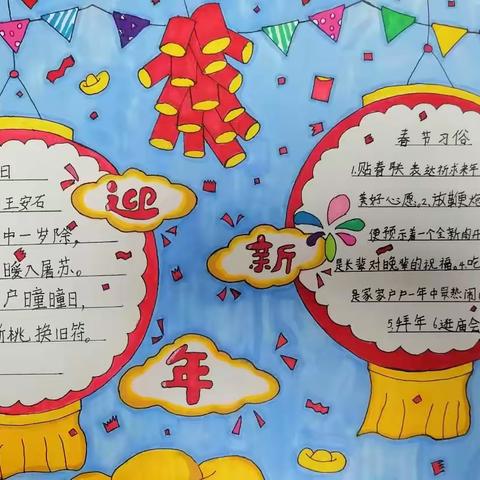 日
王安石
中一岁除,
暖入屠苏。
户曈曈日,
新桃,换旧符。
迎
新
年
春节习俗
1.贴春联 表达祈求来年
美好心愿。2.放鞭炮
便预示着一个全新的开
是长辈对晚辈的祝福。4.吃
是家家户户一年中最热闹
5.拜年 6.逛庙会